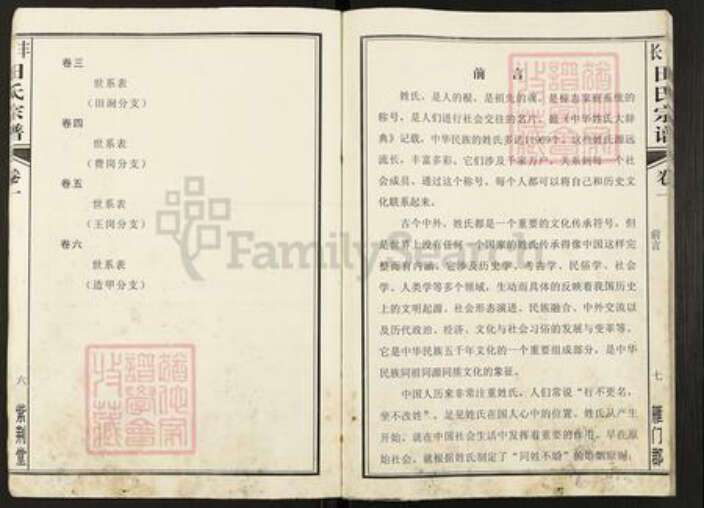 丰田氏宗谱
卷一
六
紫荆堂
卷三
世系表
（田涧分支）
卷四
世系表
（费岗分支）
卷五
世系表
（王岗分支）
卷六
世系表
（造甲分支）
FamilySearch
前言
姓氏，是人的根，是祖先的魂，是标志家庭系统的
称号，是人们进行社会交往的名片。据《中华姓氏大辞
典》记载，中华民族的姓氏多达11969个。这些姓氏源远
流长，丰富多彩。它们涉及千家万户，关系到每一个社
会成员。通过这个称号，每个人都可以将自己和历史文
化联系起来。
古今中外，姓氏都是一个重要的文化传承符号，但
是世界上没有任何一个国家的姓氏传承得像中国这样完
整而有内涵。它涉及历史学、考古学、民俗学、社会
学、人类学等多个领域，生动而具体的反映着我国历史
上的文明起源、社会形态演进、民族融合、中外交流以
及历代政治、经济、文化与社会习俗的发展与变革等。
它是中华民族五千年文化的一个重要组成部分，是中华
民族同祖同源同质文化的象征。
中国人历来非常注重姓氏。人们常说“行不更名，
坐不改姓”，足见姓氏在国人心中的位置。姓氏从产生
开始，就在中国社会生活中发挥着重要的作用。早在原
始社会，就根据姓氏制定了“同姓不婚”的婚姻原则；
长田氏宗谱
卷一
前言
七
雁门郡